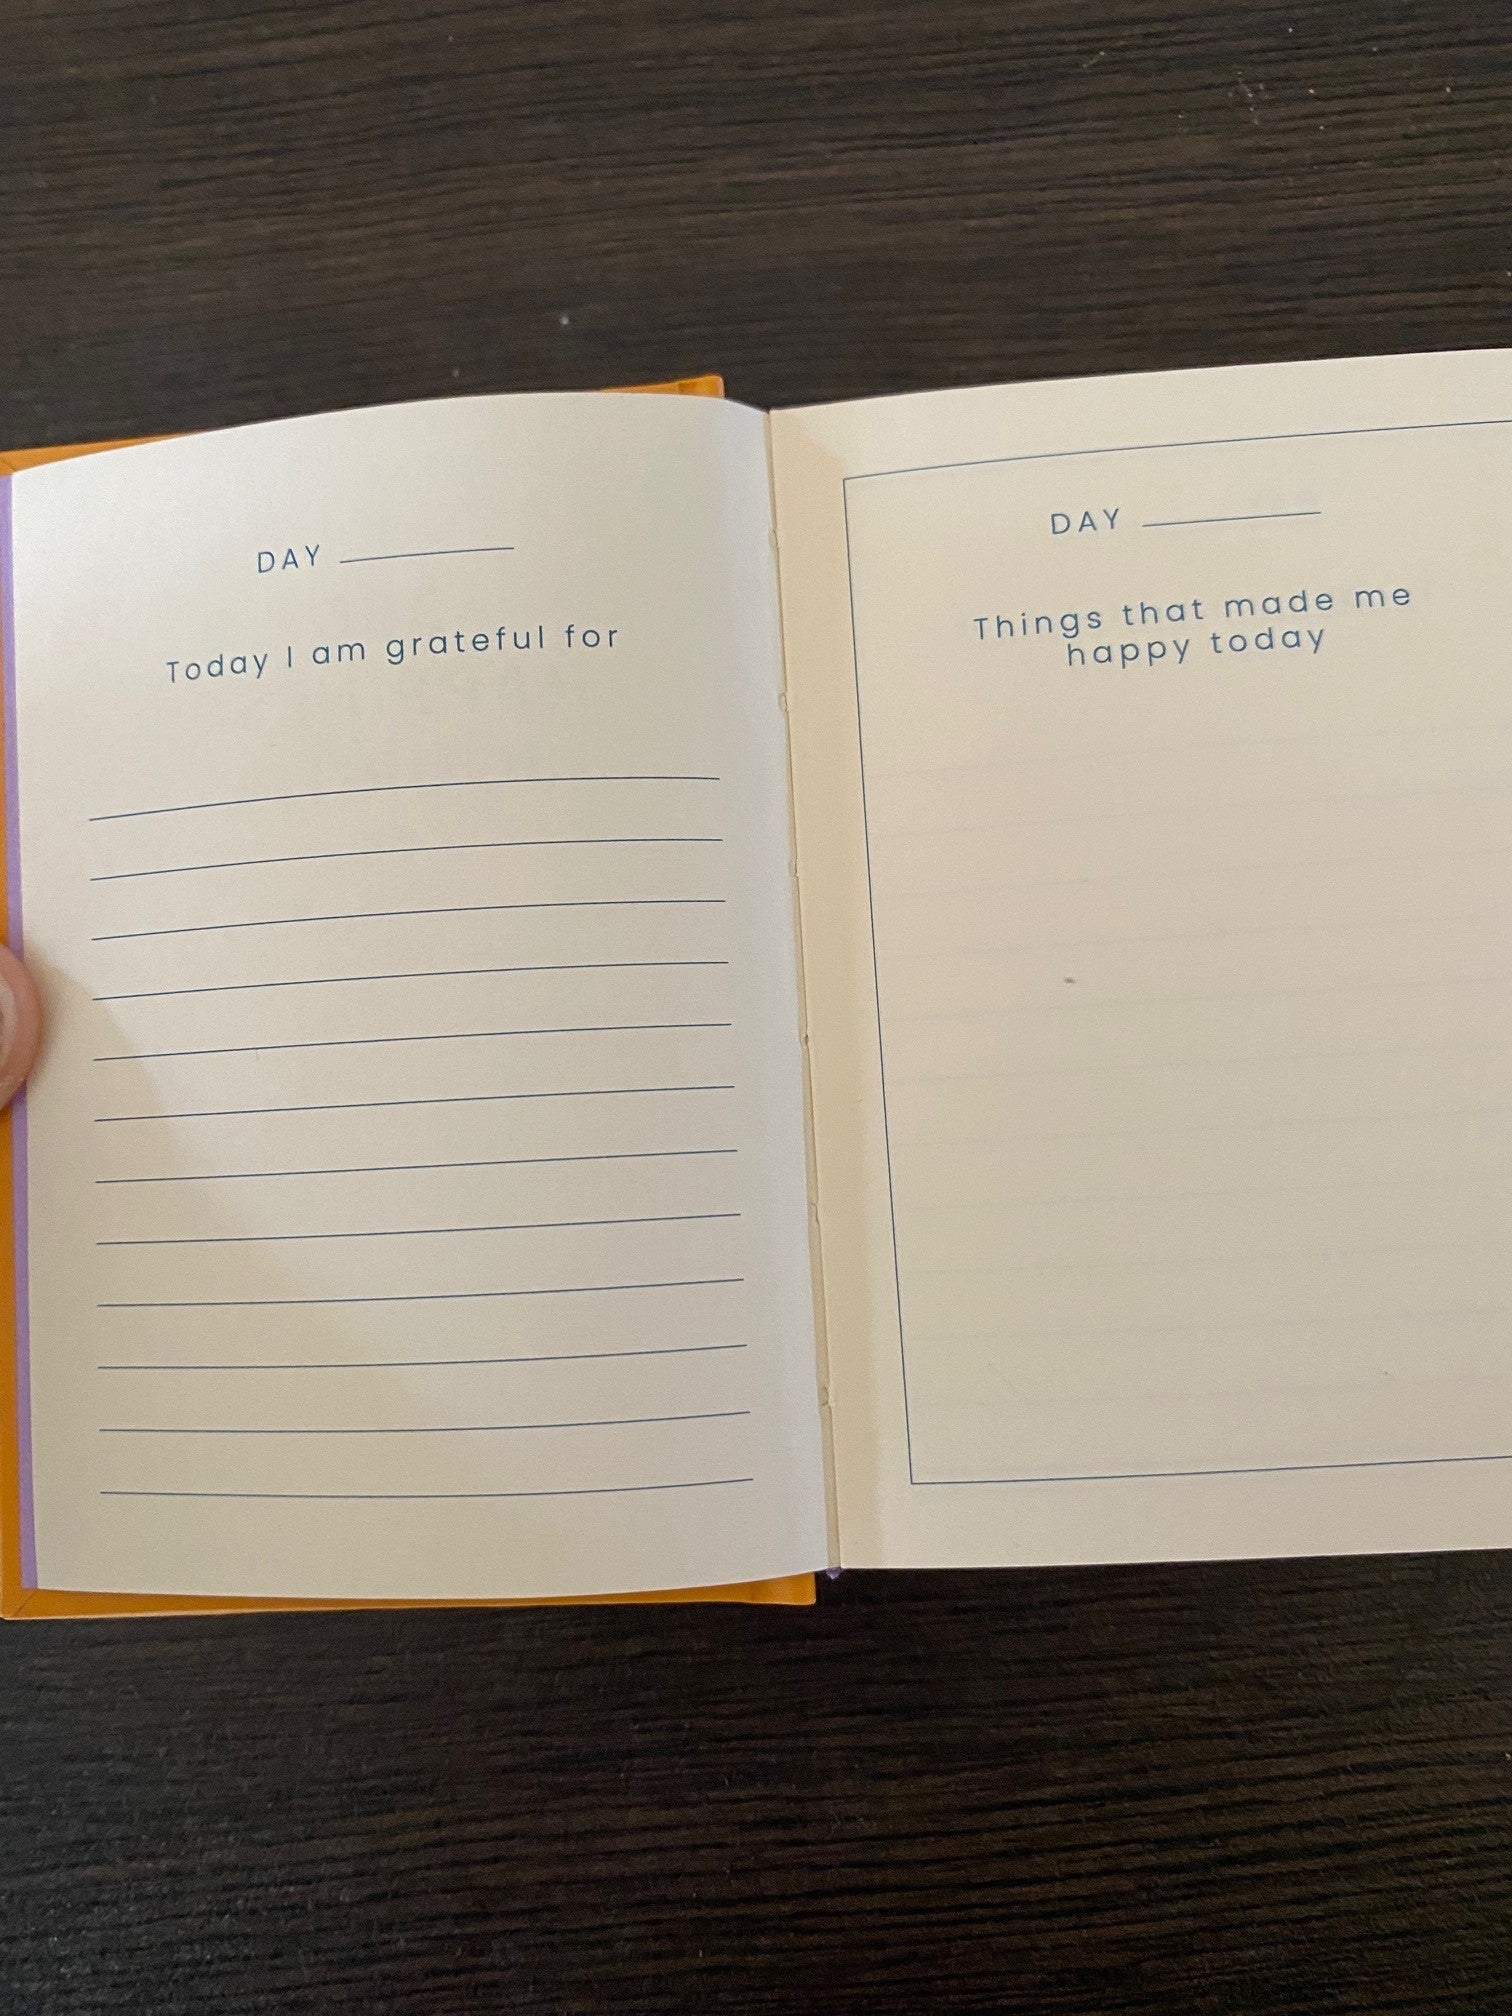 DAY
Today I am grateful for
DAY
Things that made me
happy today